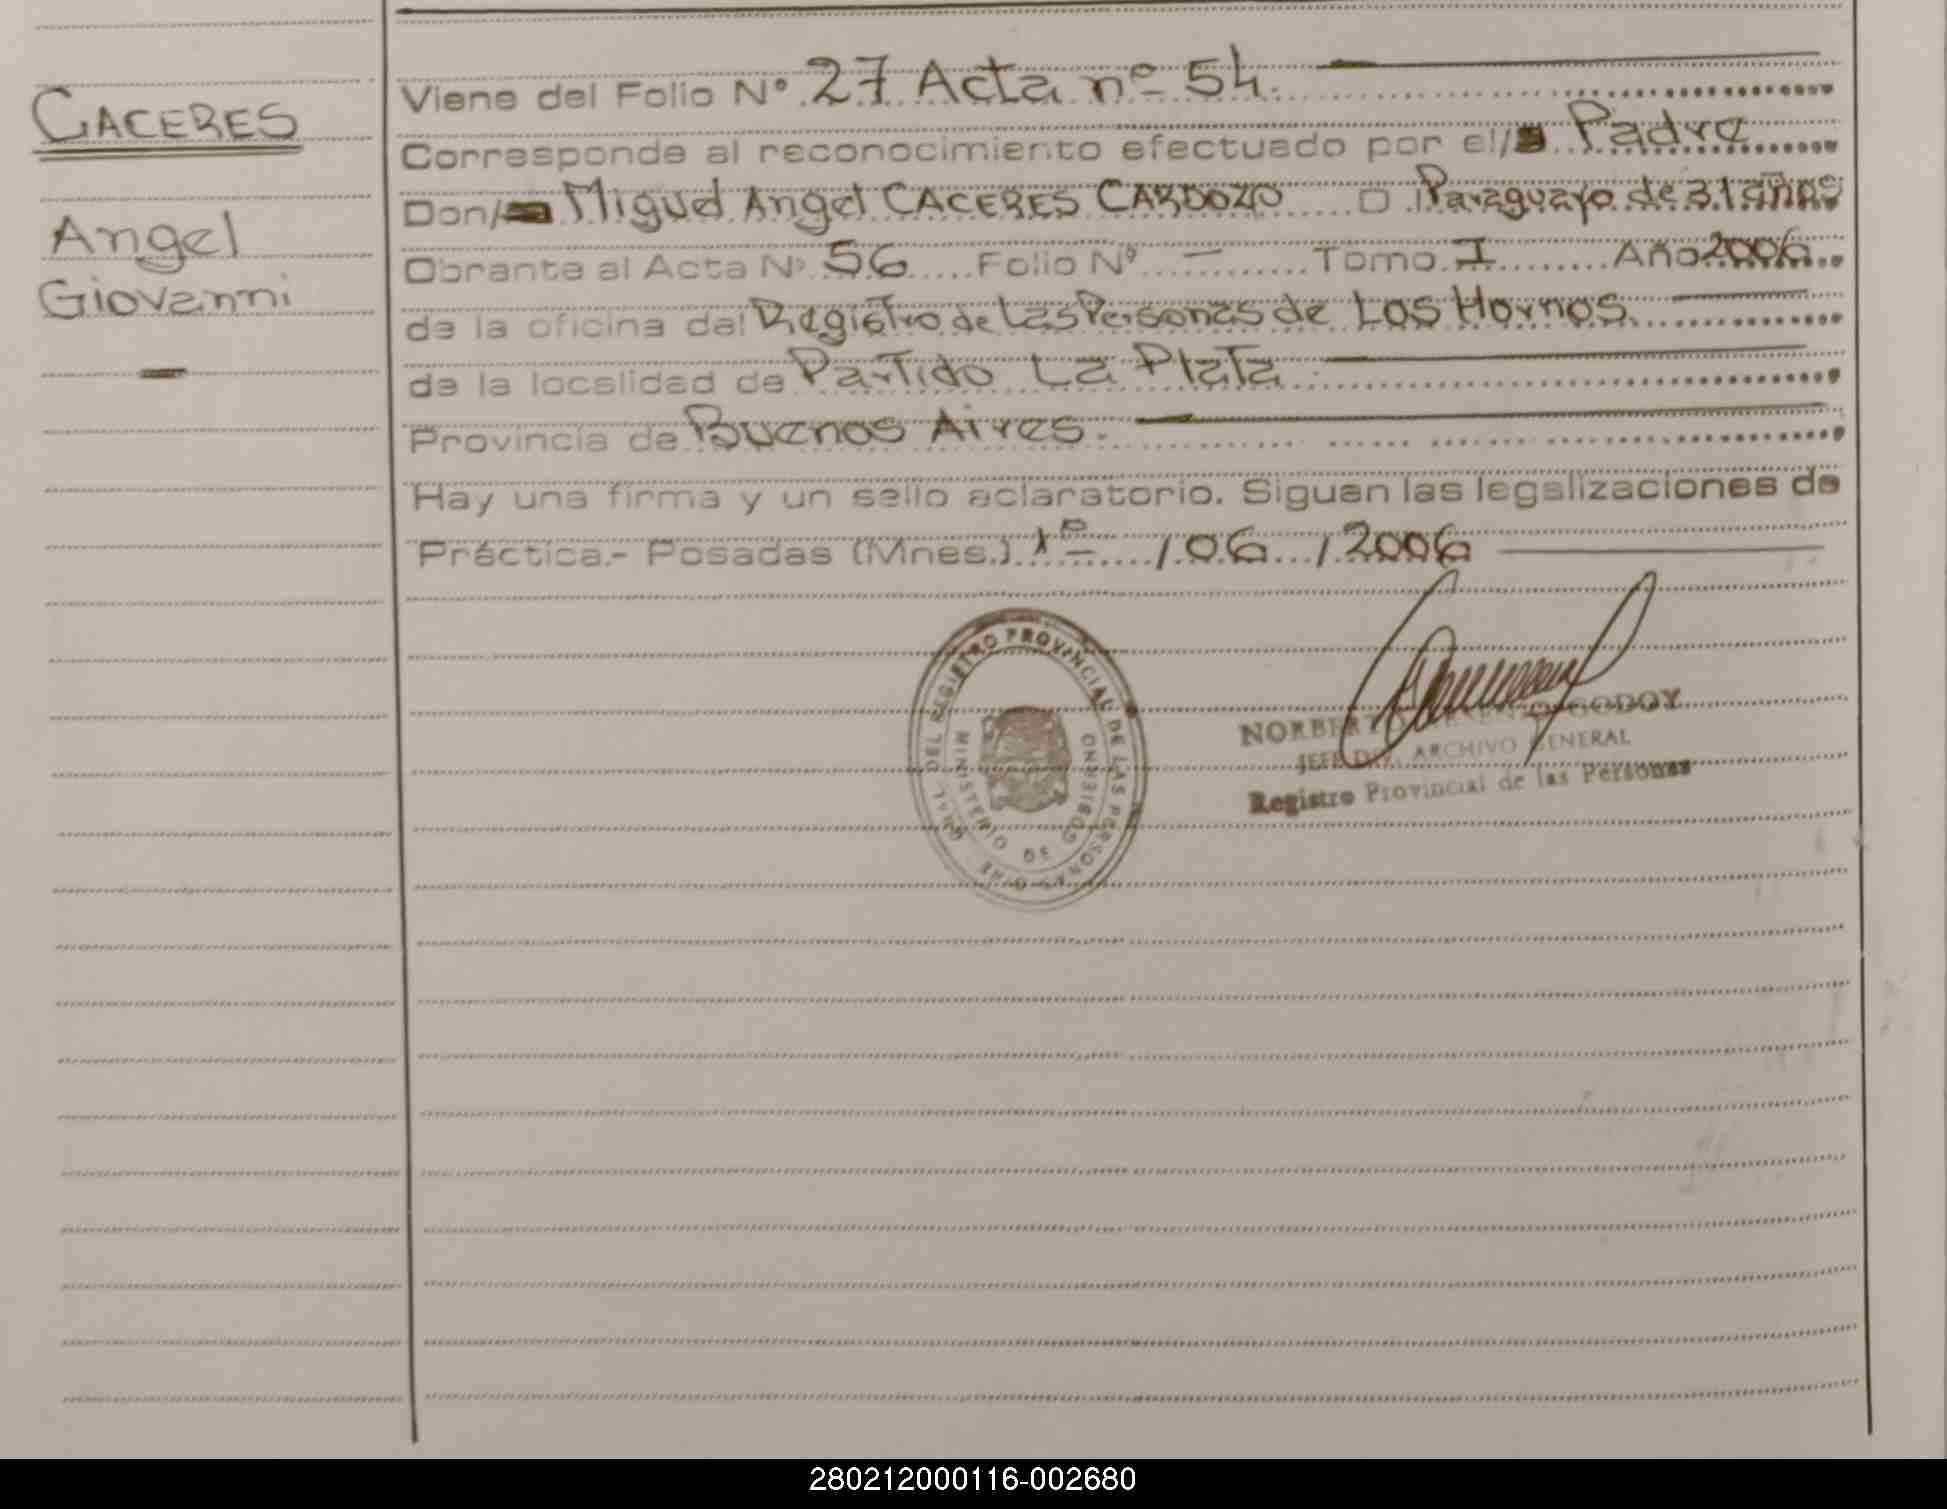 CACERES
Angel
Giovanni
Viene del Folio N° 27 Acta nº 54.
Corresponde al reconocimiento efectuado por el/ Padre
Don/ Miguel Angel CACERES CARDOZO D Paraguayo de 31 años
Obrante al Acta N° 56 Folio N° — Tomo I Año 2006
de la oficina del Registro de Las Personas de Los Hornos.
de la localidad de Partido La Plata
Provincia de Buenos Aires.
Hay una firma y un sello aclaratorio. Siguen las legalizaciones de
Práctica.- Posadas (Mnes.) 1º / 06 / 2006
DEL REGISTRO PROVINCIAL DE LAS PERSONAS
MINISTERIO DE GOBIERNO
GODOY
ARCHIVO GENERAL
Registro Provincial de las Personas
280212000116-002680